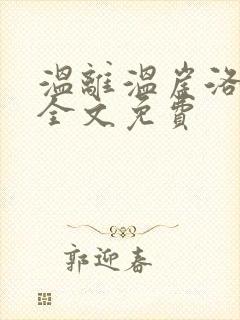 溫離溫崖洛
全文免費
郭迎春